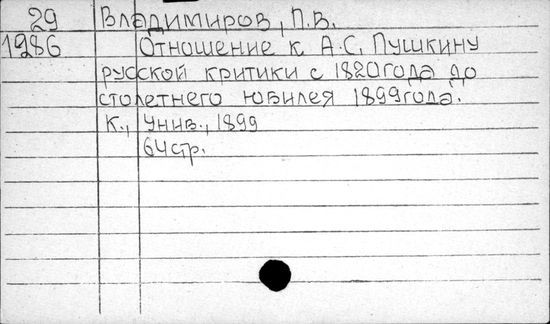 29 Владимиров, П.В.
1986 Отношение к А.С. Пушкину
русской критики с 1820 года до
столетнего юбилея 1899 года.
К., Унив., 1899
64 стр.